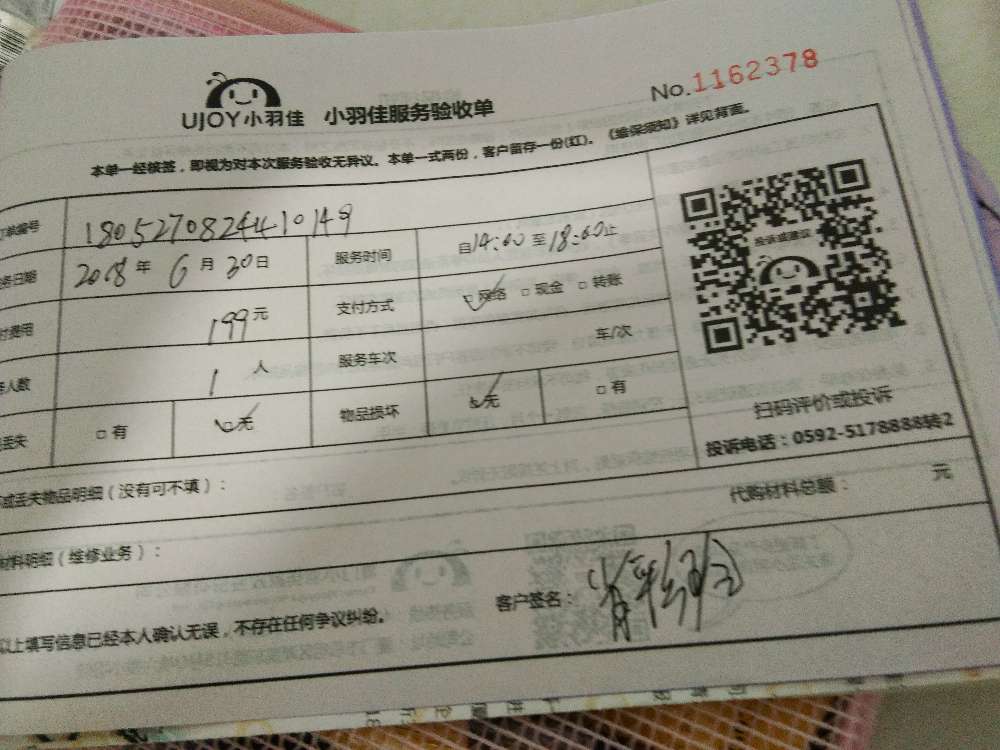 No.1162378
UJOY小羽佳 小羽佳服务验收单
本单一经核签，即视为对本次服务验收无异议。本单一式两份，客户留存一份(红)。《维保须知》详见背面。
订单编号 1805270824410149
务日期 2018年6月30日 服务时间 自14:00至18:00止
付费用 199元 支付方式 ☑网络 □现金 □转账
人数 1人 服务车次 车/次
丢失 □有 ☑无 物品损坏 ☑无 □有
投诉或建议
扫码评价或投诉
投诉电话：0592-5178888转2
或丢失物品明细（没有可不填）：
代购材料总额： 元
材料明细（维修业务）：
以上填写信息已经本人确认无误，不存在任何争议纠纷。 客户签名：